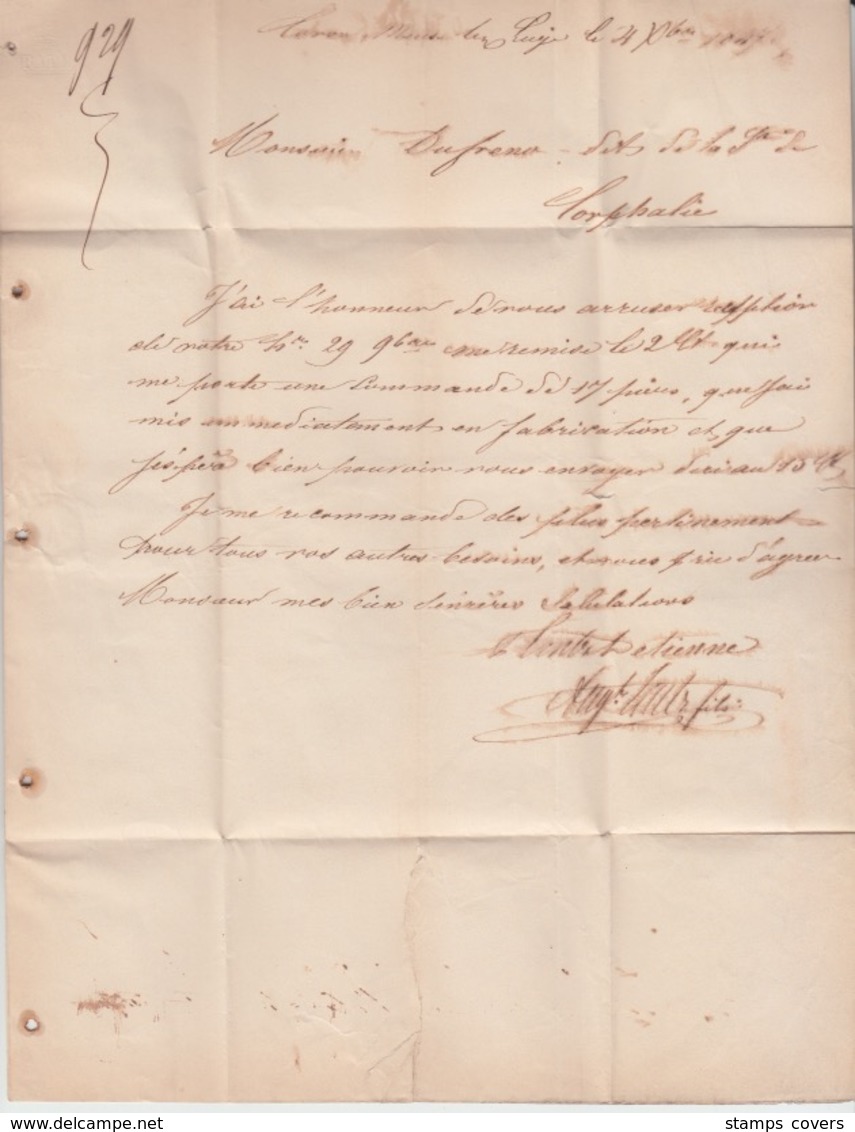 929
le 4 Xbre
Monsieur Dufreno - dr de la Sté de
Corphalie
J'ai l'honneur de vous accuser reception
de votre hre 29 9bre me remise le 2 ct qui
me porte une commande de 17 pièces, que j'ai
mis immediatement en fabrication et que
j'espère bien pouvoir vous envoyer d'ici au 15 ct
Je me recommande des plus
pour tous vos autres besoins, et vous prie d'agreer
Monsieur mes bien sincères Salutations
etienne
fils
stamps covers